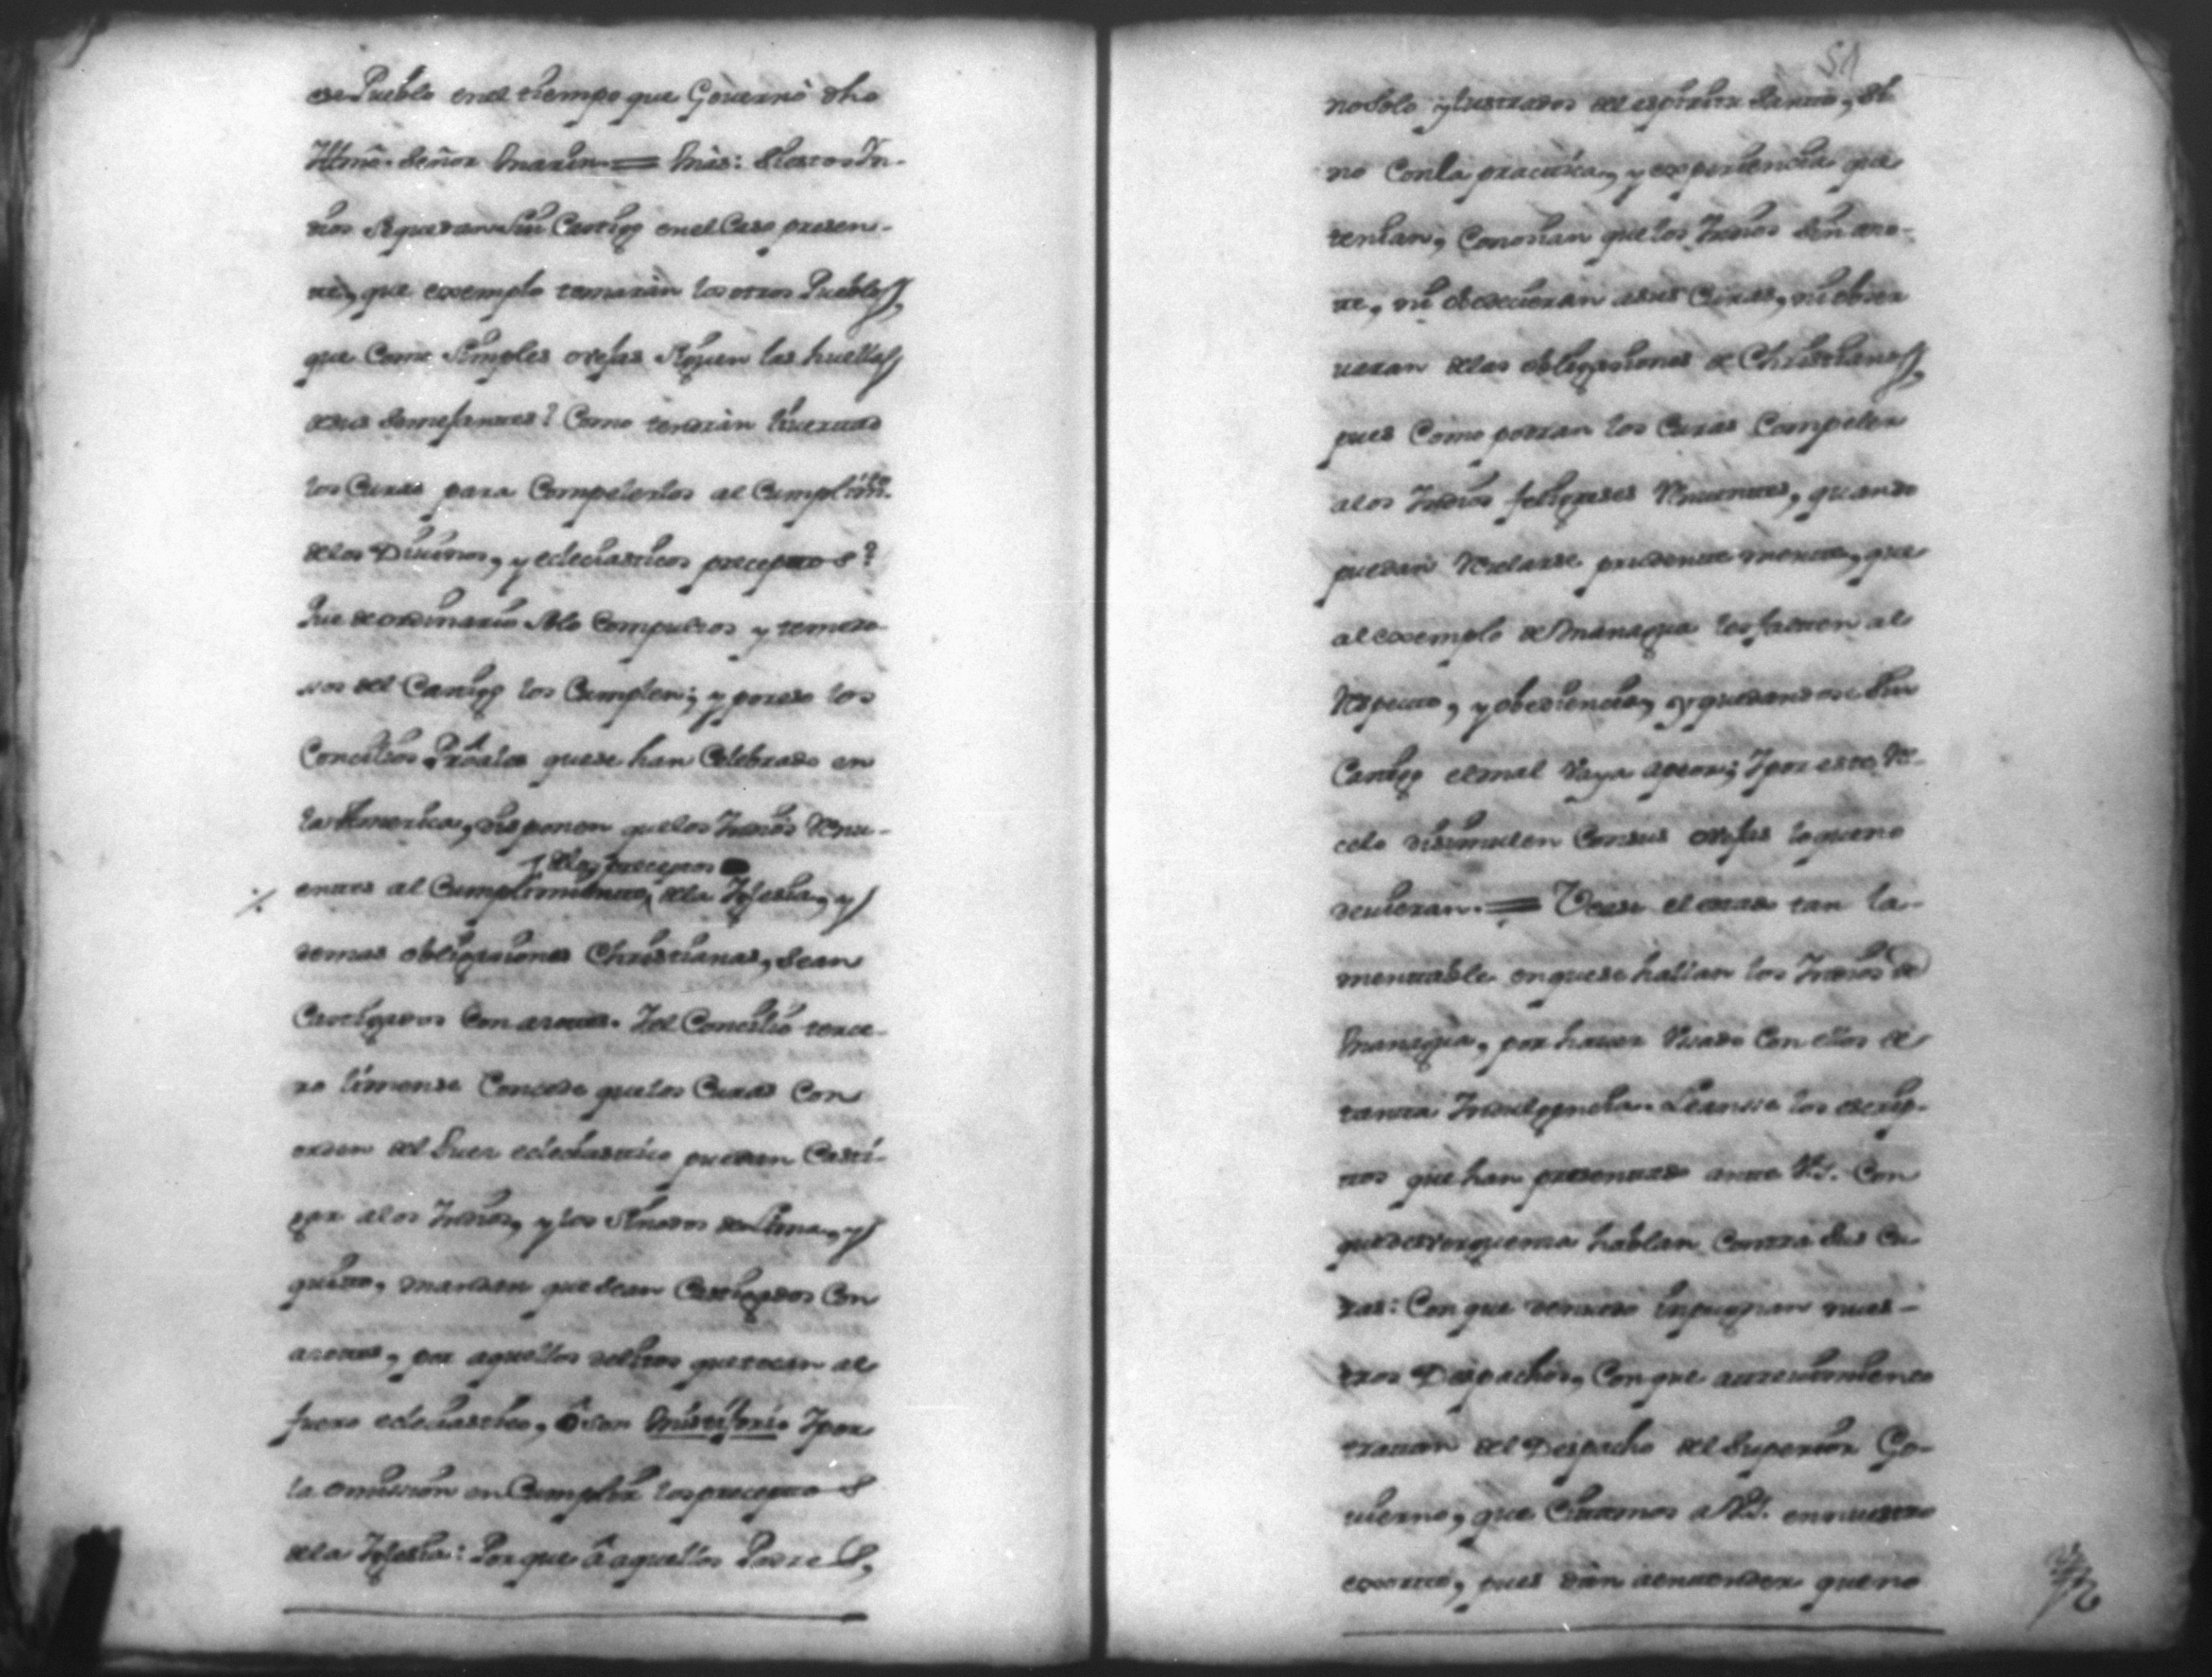 ese Pueblo en el tiempo que Governò dho
Illmô. Señor Marin. = Màs: Si estos In-
dios se quedan sin Castigo en el Caso presen-
te, que exemplo tomaràn los otros Pueblos,
que Como simples ovejas siguen las huellas
de sus semejantes? Como tendràn livertad
los Curas para Compelerlos al Cumplimto.
de los Divinos, y ecleciasticos preceptos?
Que de ordinario solo Compulsos y temero-
sos del Castigo los Cumplen; y por eso los
Concilios Proales que se han Celebrado en
la America, disponen que los Indios Renu-
de los preceptos
entes al Cumplimiento, de la Iglesia, y
demas obligasiones Christianas, sean
Castigados con asotes. I el Concilio terce-
ro limense Concede que los Curas Con
orden del Juez ecleciastico puedan Casti-
gar a los Indios, y los Sinodos de Lima, y
quito, mandan que sean Castigados Con
asotes, por aquellos delitos que tocan al
fuero eclesiastico, ò son Mistifori. I por
la omission en Cumplir los preceptos
de la Iglesia: Porque â aquellos Padres,
51
no solo ylustrados del espiritu Santo, si
no Con la practica, y experiencia que
tenian, Conosian que los Indios sin aso-
te, ni obedecieran a sus Curas, ni obser
varan de las obligasiones de Christianos,
pues Como podran los Curas Compeler
a los Indios feligreses Renuentes, quando
puedan Relarse prudentemente, que
al exemplo de Managua les falten al
Respecto, y obediencia, y quedandose sin
Castigo el mal vaya apeor; I por este Re-
celo disimulen Con sus ovejas lo que no
devieran. = Vease el estado tan la-
mentable en que se hallan los Indios de
Managua, por haver Usado Con ellos de
tanta Indulgencia. Leanse los escrip-
tos que han presentado ante V.S. Con
que desverguenza hablan Contra sus Cu-
ras: Con que denuedo inpugnan nues-
tros Despachos, Con que atrevimiento
tratan del Despacho del Superior Go-
vierno, que Citamos a V.S. en nuestro
exorto, pues dàn a entender que no